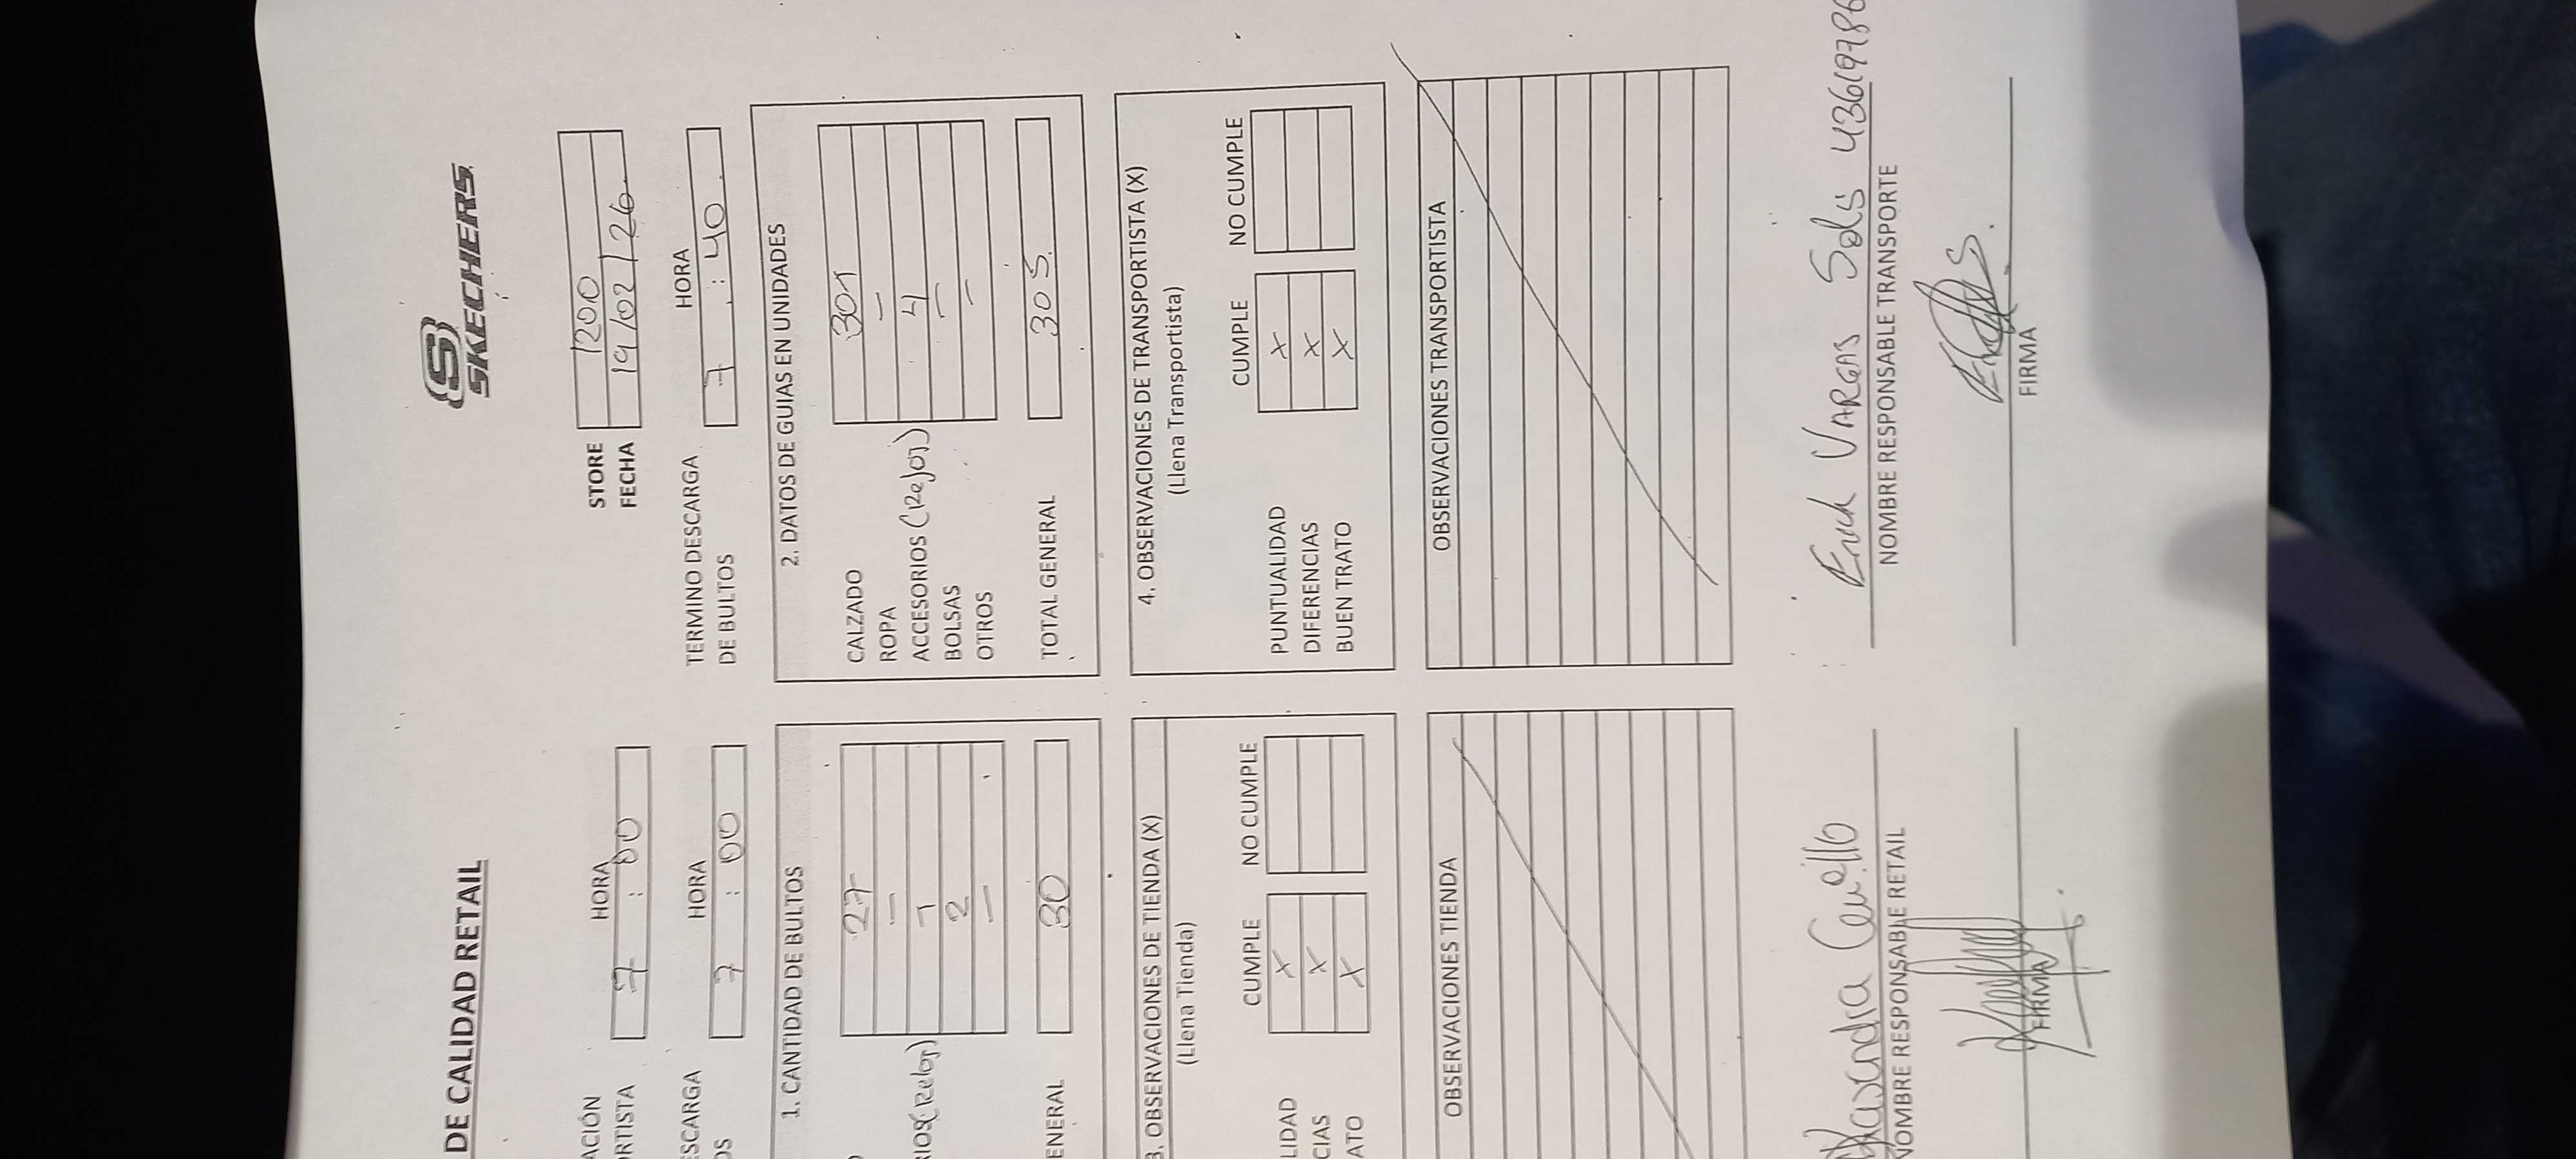 SKECHERS
DE CALIDAD RETAIL
STORE 1200
FECHA 19/02/26
ACIÓN HORA
ORTISTA 7 : 00
ESCARGA HORA
OS 7 : 00
TERMINO DESCARGA HORA
DE BULTOS 7 : 40
1. CANTIDAD DE BULTOS
27
—
RIOS (Reloj) 1
2
—
ENERAL 30
2. DATOS DE GUIAS EN UNIDADES
CALZADO 301
ROPA —
ACCESORIOS (Reloj) 4
BOLSAS —
OTROS —
TOTAL GENERAL 305
3. OBSERVACIONES DE TIENDA (X)
(Llena Tienda)
CUMPLE NO CUMPLE
LIDAD X
CIAS X
ATO X
4. OBSERVACIONES DE TRANSPORTISTA (X)
(Llena Transportista)
CUMPLE NO CUMPLE
PUNTUALIDAD X
DIFERENCIAS X
BUEN TRATO X
OBSERVACIONES TIENDA
OBSERVACIONES TRANSPORTISTA
NOMBRE RESPONSABLE RETAIL
FIRMA
Erick VARGAS Solis 43619786
NOMBRE RESPONSABLE TRANSPORTE
FIRMA